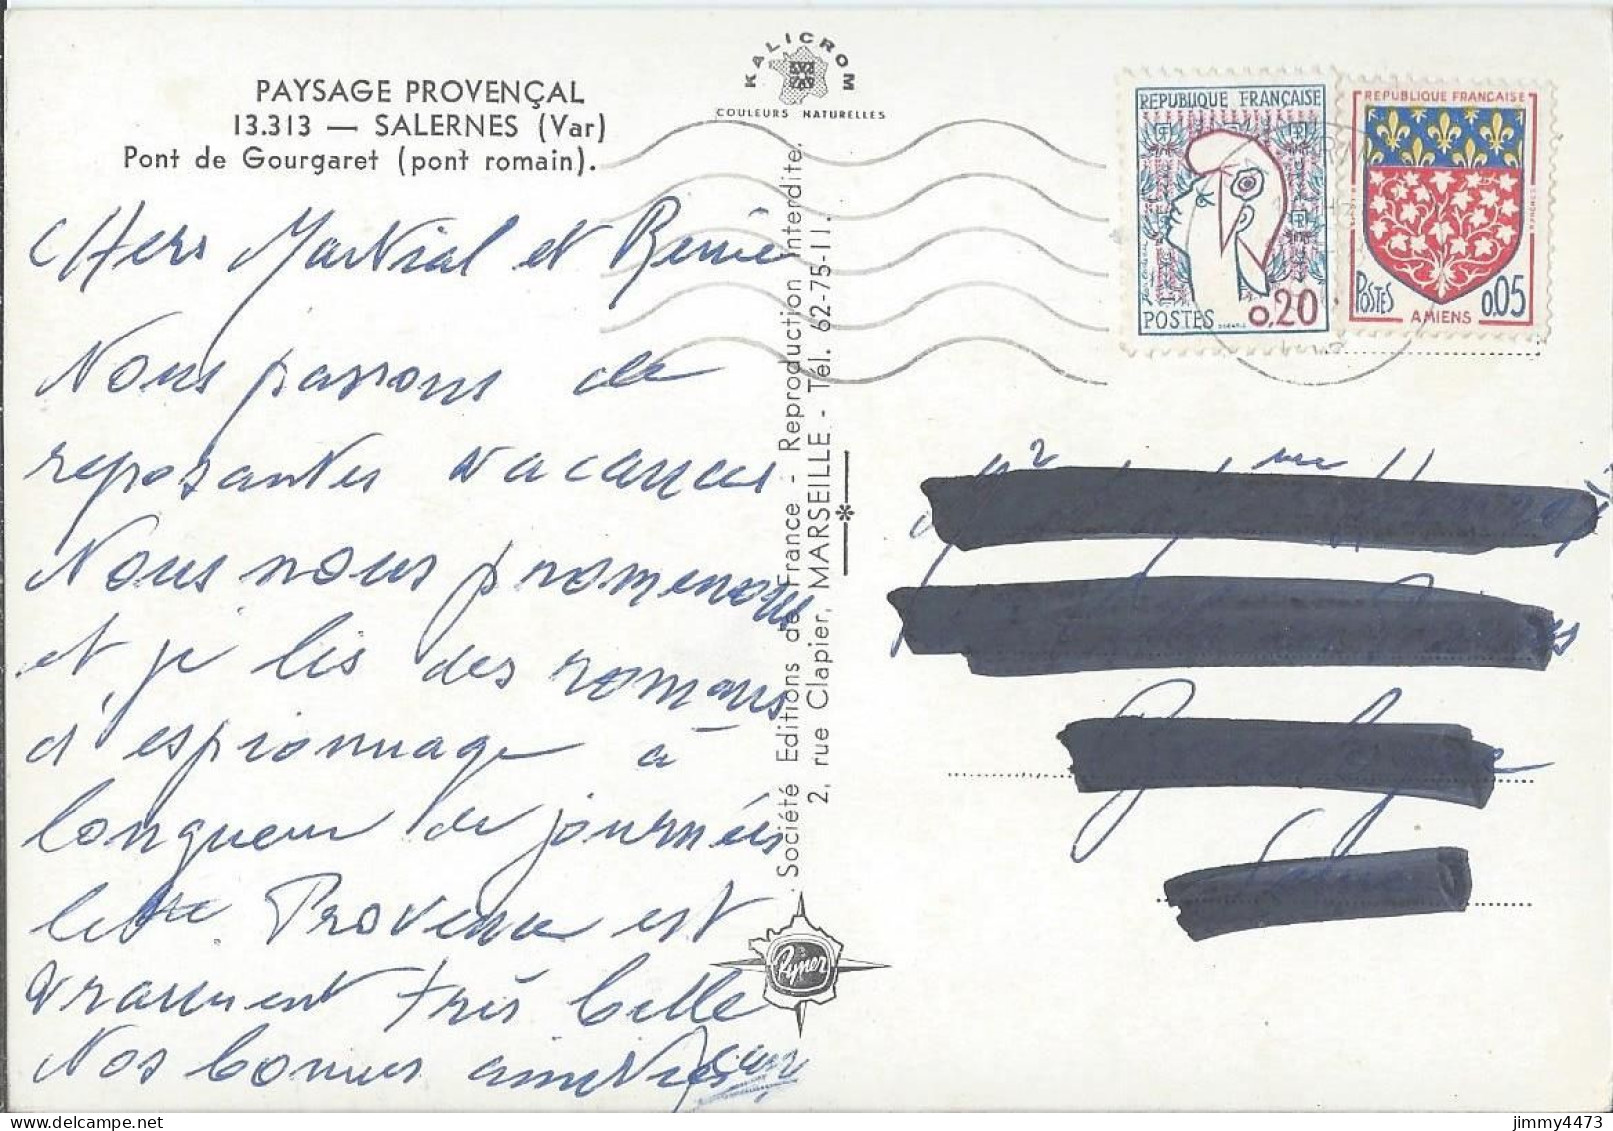 PAYSAGE PROVENÇAL
13.313 — SALERNES (Var)
Pont de Gourgaret (pont romain).
CHers Martial et
Nous passons de
reposantes vacances
Nous nous promenons
et je lis des romans
d'espionnage à
longueur de journées
cette Provence est
vraiment très belle
Nos bonnes amitiés
KALICROM
COULEURS NATURELLES
Société Editions de France - Reproduction interdite.
2, rue Clapier, MARSEILLE - Tél. 62-75-11.
Ryner
REPUBLIQUE FRANÇAISE
POSTES 0,20
REPUBLIQUE FRANCAISE
POSTES 0,05
AMIENS
jimmy4473